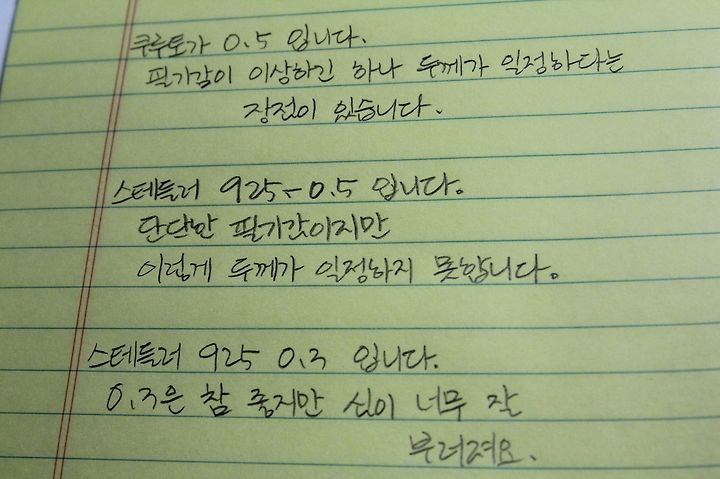 쿠루토가 0.5 입니다.
필기감이 이상하긴 하나 두께가 일정하다는
장점이 있습니다.
스테들러 925-0.5 입니다.
단단한 필기감이지만
이렇게 두께가 일정하지 못합니다.
스테들러 925 0.3 입니다.
0.3은 참 좋지만 심이 너무 잘
부러져요.